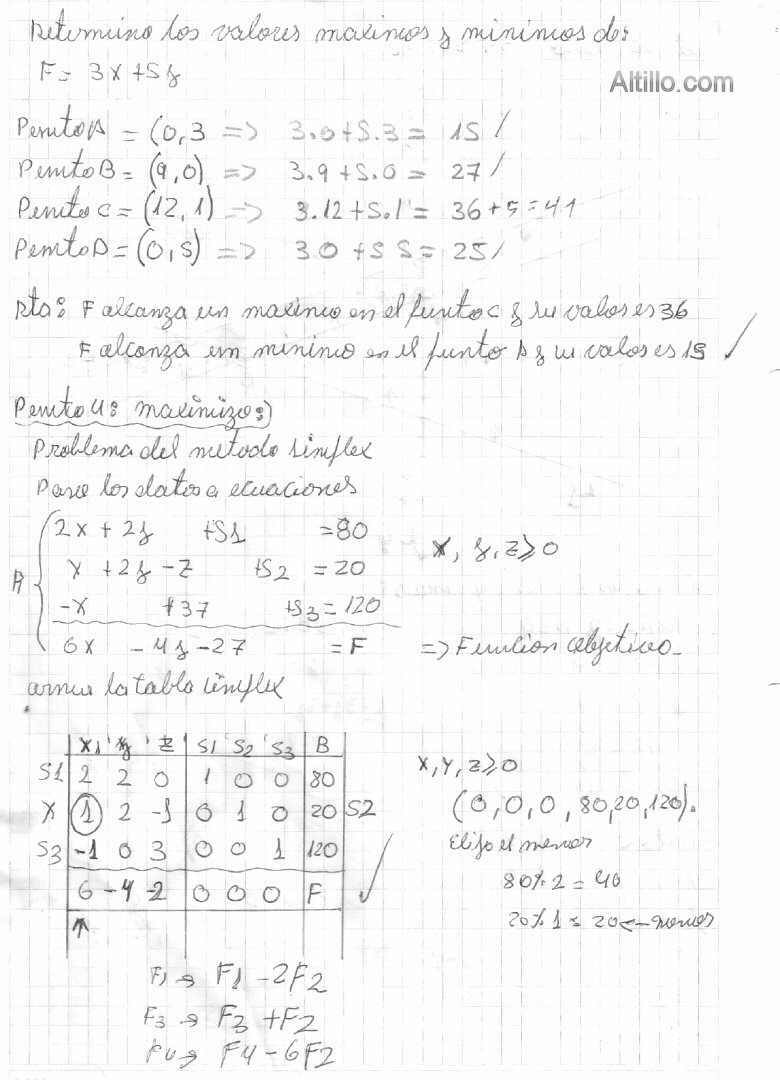 Determino los valores maximos y minimos de:
F = 3x + 5y
Altillo.com
Punto A = (0,3 => 3.0+5.3 = 15 /
Punto B = (9,0) => 3.9+5.0 = 27 /
Punto C = (12,1) => 3.12+5.1 = 36+5=41
Punto D = (0,5) => 3 0 +5 5 = 25 /
Rta: F alcanza un maximo en el punto C y su valor es 36
F alcanza un minimo en el punto A y su valor es 15 ✓
Punto 4: maximizo:)
Problema del metodo simplex
Paso los datos a ecuaciones
2x + 2y +S1 =80
x, y, z ≥ 0
x +2y -z +S2 =20
-x +3z +S3=120
6x -4y -2z = F => Funcion objetivo
armo la tabla simplex
x1 y z S1 S2 S3 B
S1 2 2 0 1 0 0 80
x, y, z ≥ 0
X 1 2 -1 0 1 0 20 S2
(0,0,0,80,20,120).
S3 -1 0 3 0 0 1 120
Elijo el menor
6 -4 -2 0 0 0 F ✓
80 % 2 = 40
↑
20 % 1 = 20 <- menor
F1 → F1 - 2F2
F3 → F3 + F2
F4 → F4 - 6F2